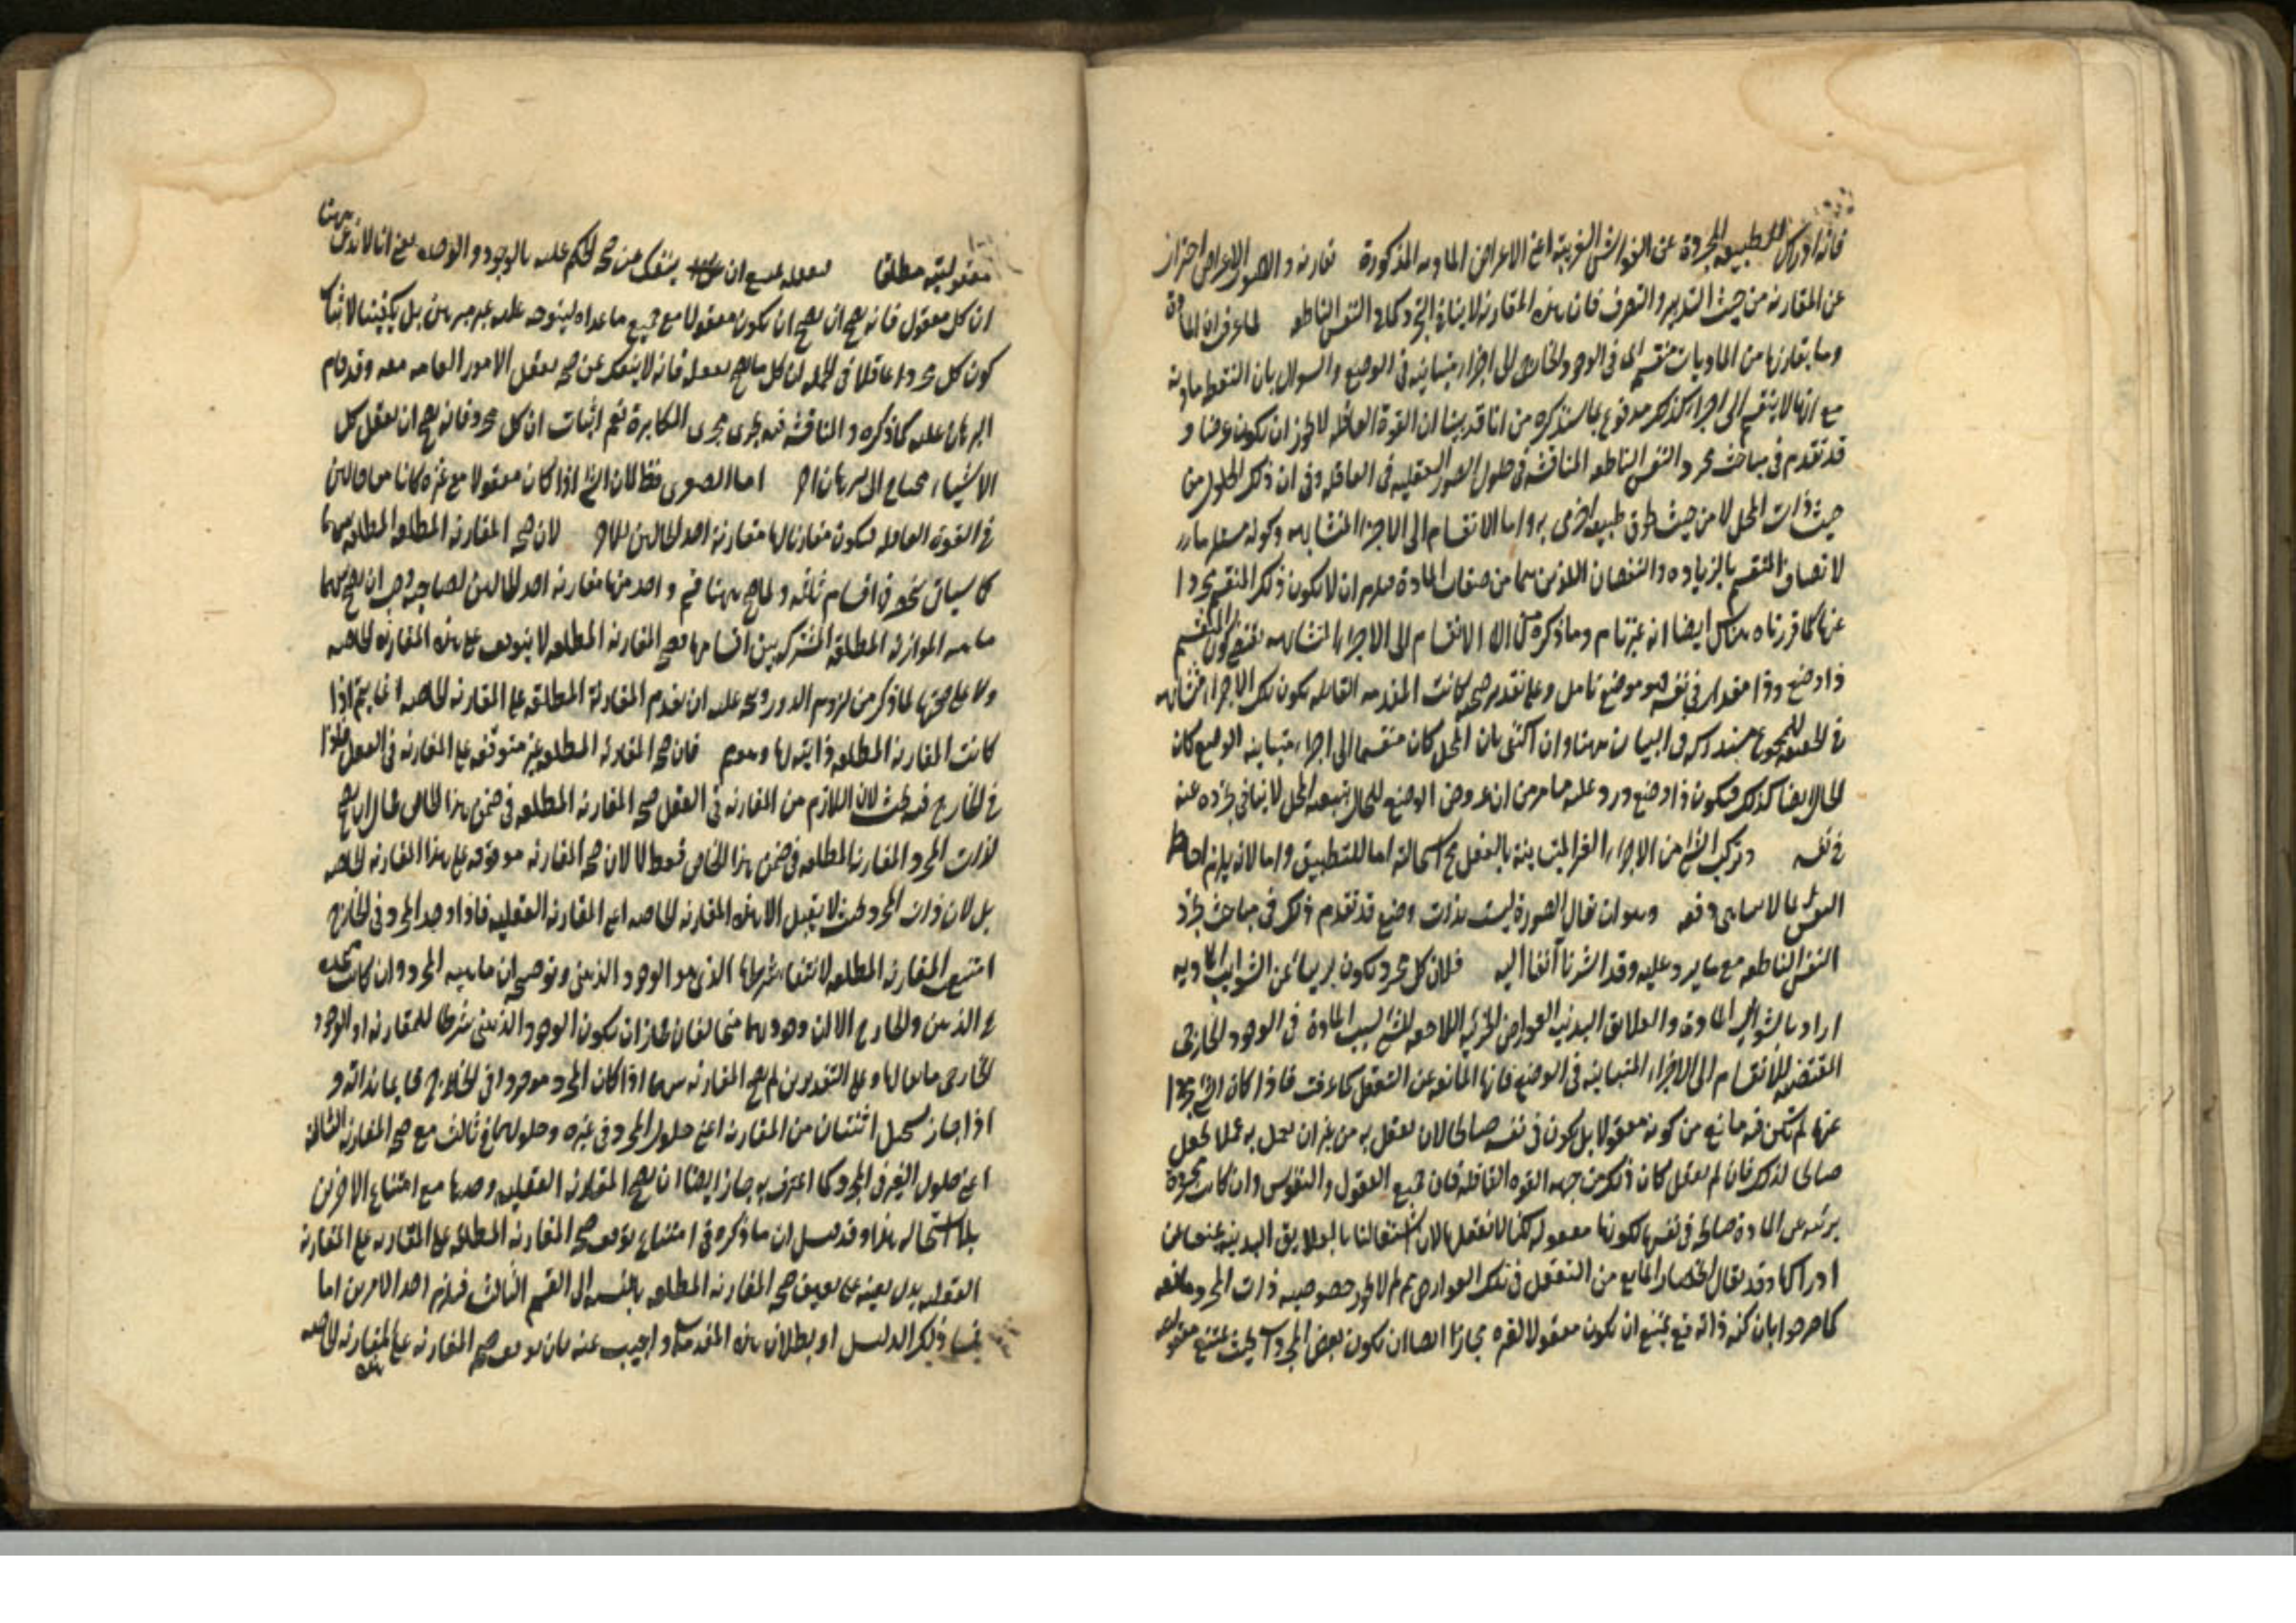 فانه ادراك للطبيعة المجردة عن الغواشى الغريبة اعنى الاعراض المادية المذكورة تقارنه والاعراض احتراز
عن المقارنة من حيث التدبير والتصرف فان هذه المقارنة لا ينافى التجرد كما فى النفس الناطقة لما عرف ان المادة
وما يقارنها من الماديات منقسم الى فى الوجود الخارجى الى اجزاء متباينة فى الوضع والسؤال بان النقطة مادية
مع انها لا ينقسم الى اجزاء كذلك مدفوع بما سنذكره من انا قد بينا ان القوة العاقلة لا يجوز ان يكون عرضا و
قد تقدم فى مباحث تجرد النفس الناطقة المناقشة فى حلول الصور العقلية فى العاقلة وفى ان ذلك الحلول من
حيث ذات المحل لا من حيث طبيعة اخرى به واما الانقسام الى الاجزاء المتشابهة وكونه
لاتصاف المنقسم بالزيادة والنقصان اللذين هما من صفات المادة فيلزم ان لا يكون ذلك المنقسم مجردا
عنها كما قررناه هناك ايضا انه غير تام وما ذكره الانقسام الى الاجزاء المتشابهة يقتضى كون المنقسم
ذا وضع وذا مقدار فى نفسه هو موضع تامل وعلى تقدير صحته كانت المقدمة القائلة بكون تلك الاجزاء متشابهة
فى الحقيقة للمجموع مستدركة فى البيان ههنا وان اكتفى بان المحل كان منقسما الى اجزاء متباينة الوضع كان
الحال ايضا كذلك فيكون ذا وضع ورد عليه ما مر من ان عروض الوضع للحال بتبعية المحل لا ينافى تجرده عنه
فى نفسه وتركب الشئ من الاجزاء الغير المتناهية بالفعل مح استحالته اما للتطبيق واما لانه يلزم احاطة
النفس بما لا يتناهى دفعة وهو ان يقال الصورة ليست بذات وضع قد تقدم ذلك فى مباحث تجرد
النفس الناطقة مع ما يرد عليه وقد اشرنا آنفا اليه فلان كل مجرد يكون بريئا عن الشوايب المادية
اراد بالشوايب المادة والعلايق البدنية العوارض الجزئية اللاحقة للشئ بسبب المادة فى الوجود الخارجى
المقتضية للانقسام الى الاجزاء المتباينة فى الوضع فانها المانعة عن التعقل كما عرفت فاذا كان الشئ مجردا
عنها لم يكن فيه مانع من كونه معقولا بل يكون فى نفسه صالحا لان يعقل به من غير ان يعمل به عملا يجعل
صالحا لذلك فان لم يعقل كان ذلك من جهة القوة العاقلة فان جميع العقول والنفوس وان كانت مجردة
برئية عن المادة صالحة فى نفسها لكونها معقولة لكنا لا نعقلها لان اشتغالنا بالعلايق البدنية يمنعنا عن
ادراكها وقد يقال انحصار المانع من التعقل فى تلك العوارض مم لم لا يجوز خصوصية ذات المجرد مانعة
كما صرحوا بان كنه ذاته تع يمتنع ان يكون معقولا لغيره فجاز ايضا ان يكون بعض المجردات بحيث يمتنع معقوليته
معقوليته مطلقا تعقله يمتنع ان ينفك عن صحة الحكم عليه بالوجود والوحدة يعنى انا لا ندعى ههنا
ان كل معقول فانه يصح ان يكون معقولا مع جميع ما عداه ليتوجه عليه غير مبرهن بل يكفينا لاثبات
كون كل مجرد عاقلا فى الجملة ان كل ما يصح تعقله فانه لا ينفك عن صحة تعقل الامور العامة معه وقد قام
البرهان عليه كما ذكره والمناقشة فيه يجرى مجرى المكابرة نعم اثبات ان كل مجرد فانه يصح ان يعقل كل
الاشياء محتاج الى برهان اخر اما الصغرى فظ لان الشئ اذا كان معقولا مع غيره كانا معا حالين
فى القوة العاقلة فيكون مقارنا لها مقارنة احد الحالين للاخر لان صحة المقارنة المطلقة
كما سياتى نحو فى اقسام ثلثة ولما صح ههنا قسم واحد منها مقارنة احد الحالين لصاحبه وجب ان يصح
ماهية المقارنة المطلقة المشتركة بين اقسامها فصحة المقارنة المطلقة لا يتوقف على هذه المقارنة الخاصة
ولا على صحتها لما ذكر من لزوم الدور ويتجه عليه ان تقدم المقارنة المطلقة على المقارنة الخاصة انما يتم اذا
كانت المقارنة المطلقة ذاتية لها وهو مم فان صحة المقارنة المطلقة غير متوقفة على المقارنة فى العقل
فى الخارج فيه بحث لان اللازم من المقارنة فى العقل صحة المقارنة المطلقة فى ضمن هذا الخاص
لذات المجرد المقارنة المطلقة فى ضمن هذا الخاص فقط لا لان صحة المقارنة موقوفة على هذا المقارنة الخاصة
بل لان ذات المجرد بحيث لا يقبل الا هذه المقارنة الخاصة اعنى المقارنة العقلية فاذا وجد المجرد فى الخارج
امتنع المقارنة المطلقة لانتفاء شرطها الذى هو الوجود الذهنى وتوضيحه ان ماهية المجرد وان كانت متحدة
فى الذهن والخارج الا ان وجوديهما متخالفان فجاز ان يكون الوجود الذهنى شرطا للمقارنة او الوجود
الخارجى مانعا لها وعلى التقديرين لم يصح المقارنة اذا كان المجرد موجودا فى الخارج قائما بذاته و
اذا جاز يستحيل اثنتان من المقارنة اعنى حلول المجرد فى غيره وحلولهما فى ثالث مع صحة المقارنة الثالثة
اعنى حلول الغير فى المجرد كما اعترف به جاز ايضا ان يصح المقارنة العقلية وحدها مع امتناع الاخرين
بلا استحالة هذا وقد ان ما ذكره فى امتناع توقف صحة المقارنة المطلقة على المقارنة
العقلية يدل بعينه على صحة المقارنة المطلقة بالنسبة الى القسم الثالث فيلزم احد الامرين اما
ذلك الدليل او بطلان هذه المقدمة واجيب عنه بان توقف صحة المقارنة على المقارنة الخاصة